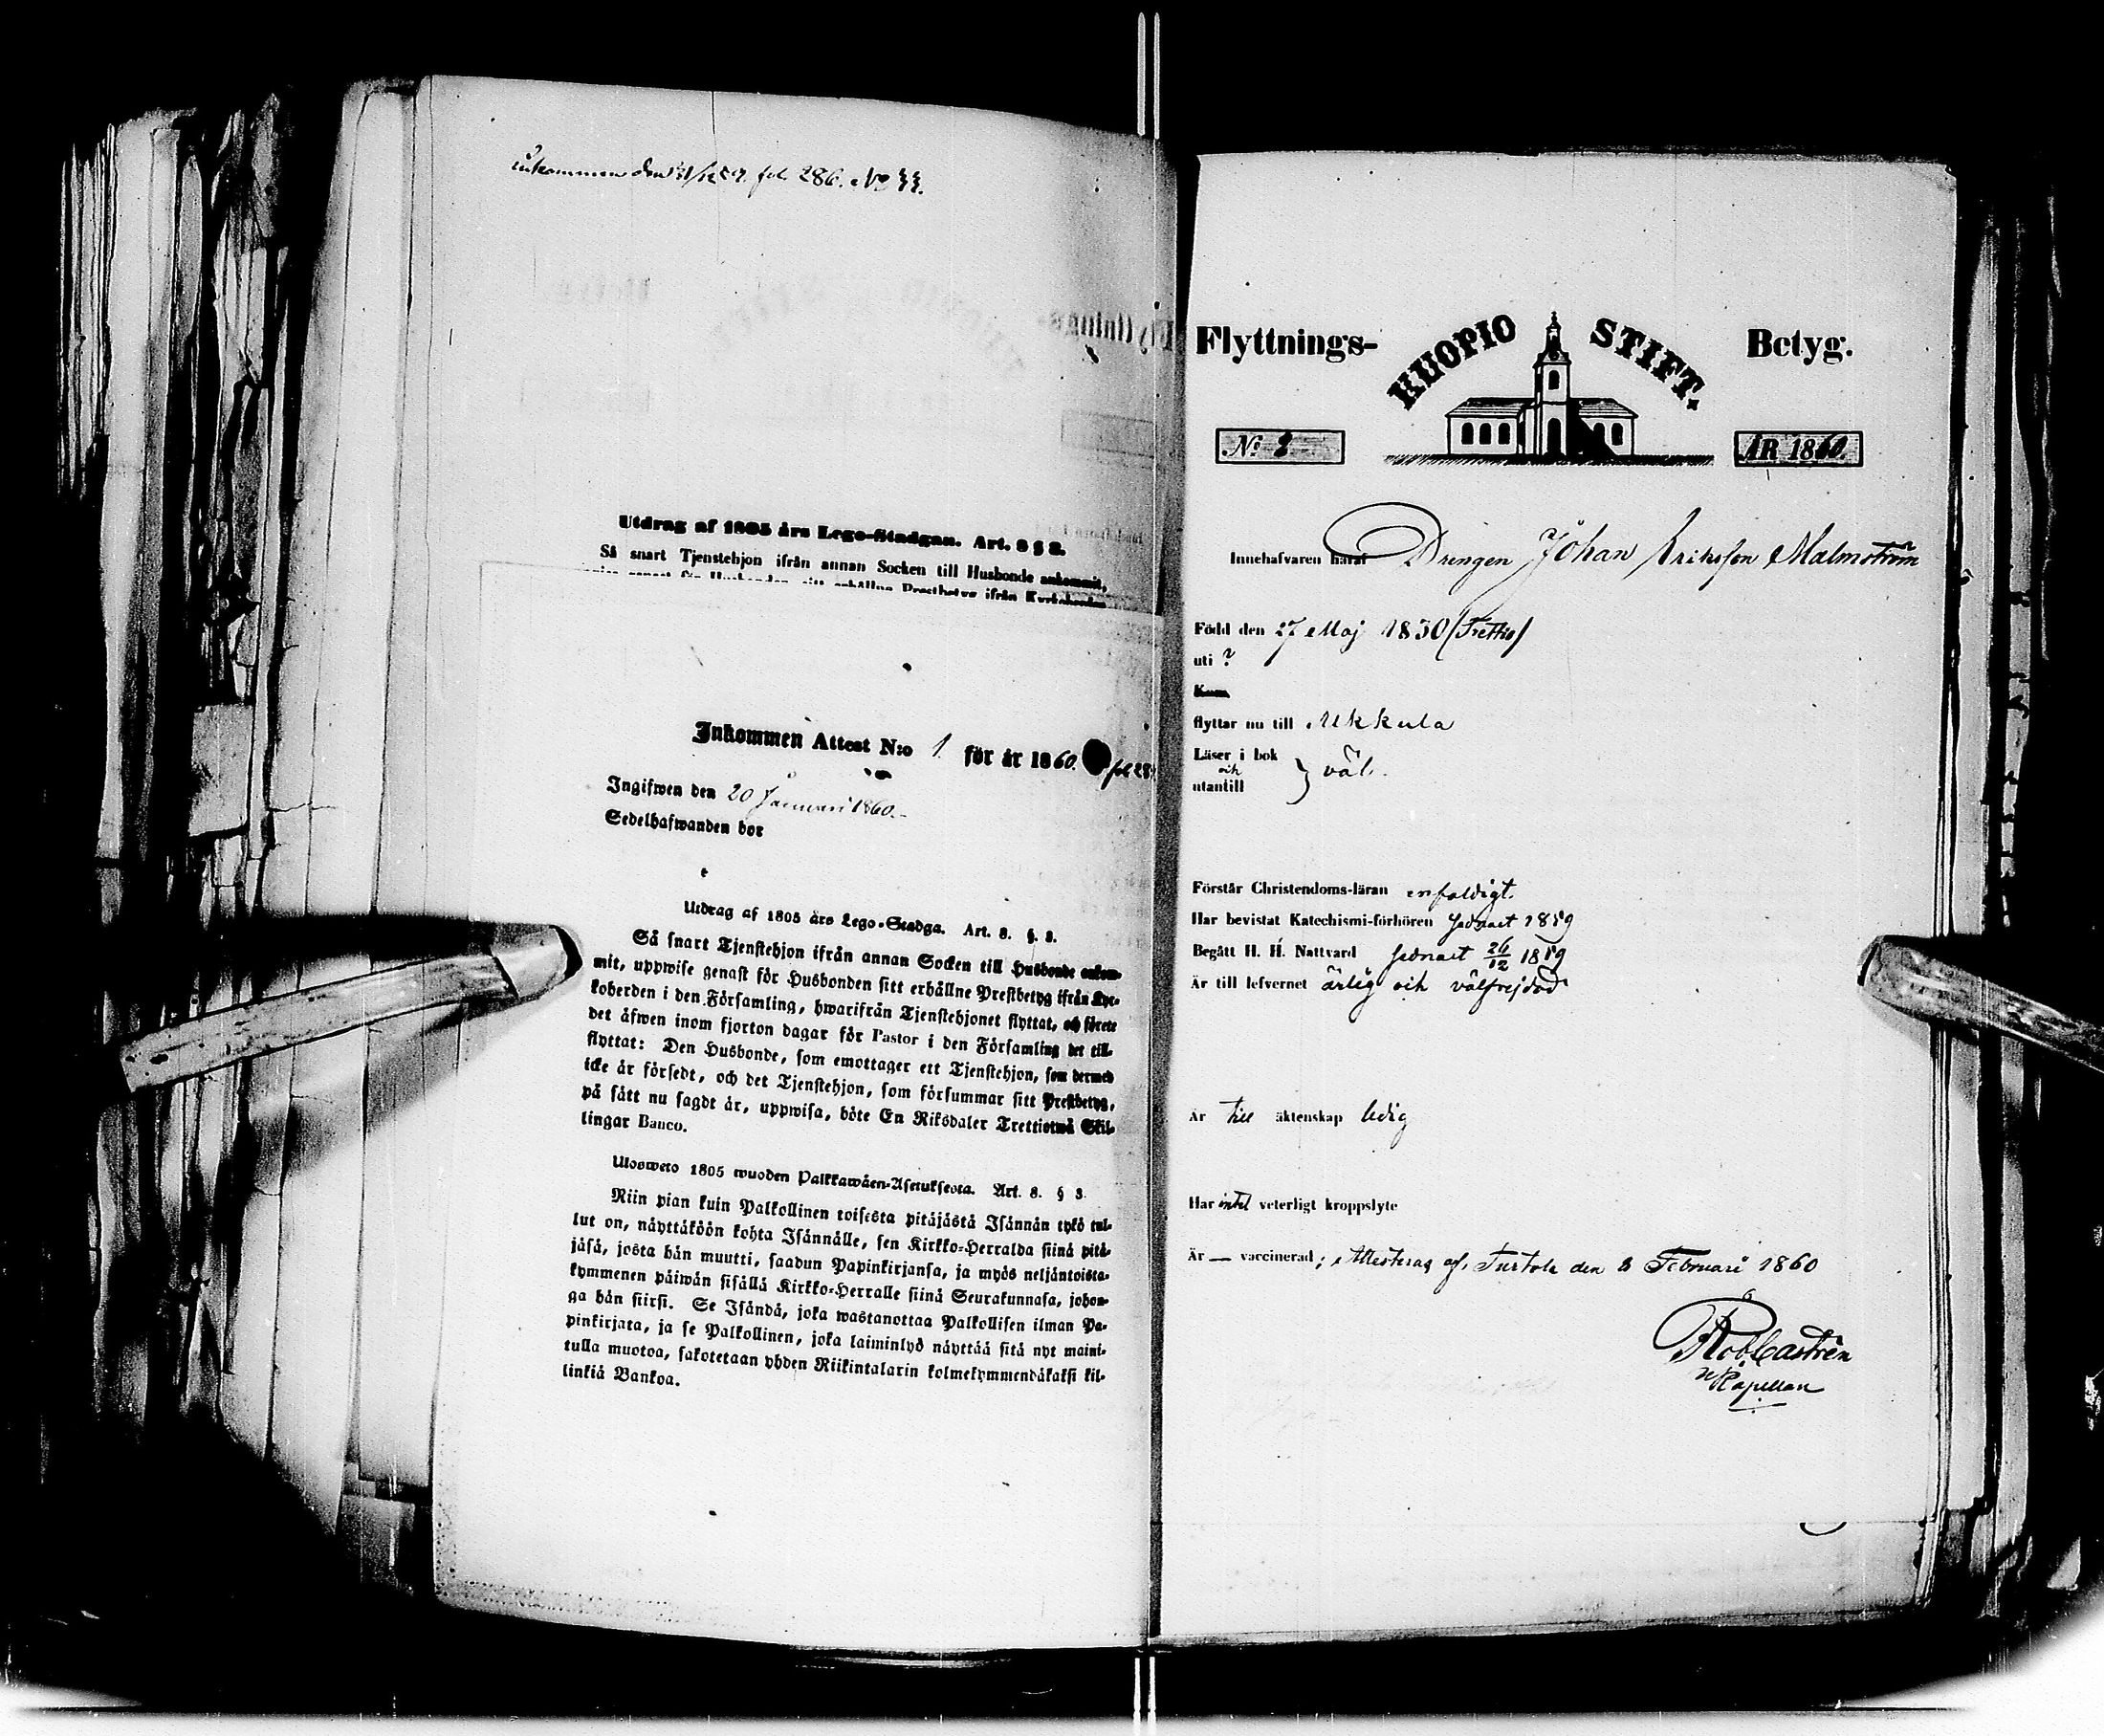 inkommen den 31/12 59. fol. 286. No 55.
Utdrag af 1805 års Lego-Stadgan. Art. 8 § 3.
Så snart Tjenstehjon ifrån annan Socken till Husbonde ankommit,
Inkommen Attest N:o 1. för år 1860. fol 28
Ingifwen den 20 Januari 1860.
Sedelhafwanden bor
Utdrag af 1805 års Lego-Stadga. Art. 8. §. 3.
Så snart Tjenstehjon ifrån annan Socken till Husbonde ankom-
mit, uppwise genast för Husbonden sitt erhållne Prestbetyg ifrån Kyr-
koherden i den Församling, hwarifrån Tjenstehjonet flyttat, och förete
det åfwen inom fjorton dagar för Pastor i den Församling det till-
flyttat: Den Husbonde, som emottager ett Tjenstehjon, som dermed
icke är försedt, och det Tjenstehjon, som försummar sitt Prestbetyg,
på sätt nu sagdt är, uppwisa, böte En Riksdaler Trettiotwå Skil-
lingar Banco.
Ulosweto 1805 wuoden Palkkawäen-Asetuksesta. Art. 8. § 3.
Niin pian kuin Palkollinen toisesta pitäjästä Isännän tykö tul-
lut on, näyttäköön kohta Isännälle, sen Kirkko-Herralda siinä pitä-
jäsä, josta hän muutti, saadun Papinkirjansa, ja myös neljäntoista-
kymmenen päiwän sisällä Kirkko-Herralle siinä Seurakunnasa, johon-
ga hän siirsi. Se Isändä, joka wastanottaa Palkollisen ilman Pa-
pinkirjata, ja se Palkollinen, joka laiminlyö näyttää sitä nyt maini-
tulla muotoa, sakotetaan yhden Riikintalarin kolmekymmendäkaksi kil-
linkiä Bankoa.
Flyttnings- KUOPIO STIFT. Betyg.
No 2 ÅR 1860.
Innehafvaren häraf Drengen Johan Eriksson Malmström
Född den 27 Maj 1830 (Trettio)
uti ?
Kom
flyttar nu till Ukkula
Läser i bok
och } väl.
utantill
Förstår Christendoms-läran enfaldigt.
Har bevistat Katechismi-förhören sednast 1859
Begått H. H. Nattvard sednast 26/12 1859
Är till lefvernet ärlig och välfrejdad
Är till äktenskap ledig
Har intet veterligt kroppslyte
Är — vaccinerad; Attesteras af. Turtola den 2 Februari 1860
Rob Castrén
Kapellan